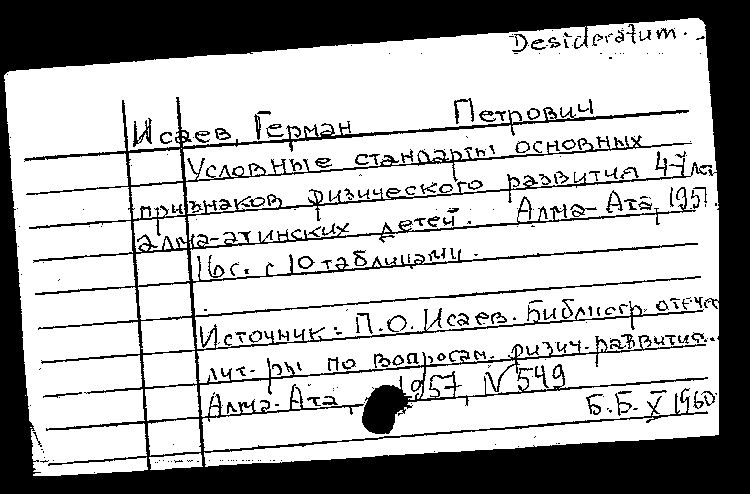 Desideratum.
Исаев, Герман Петрович
Условные стандарты основных
признаков физического развития 4-7 лет
алма-атинских детей. Алма-Ата, 1951.
16 с. с 10 таблицами.
Источник: П.О. Исаев. Библиогр. отечес
лит-ры по вопросам физич. развития..
Алма-Ата, 1957, № 549
Б.Б. X 1960